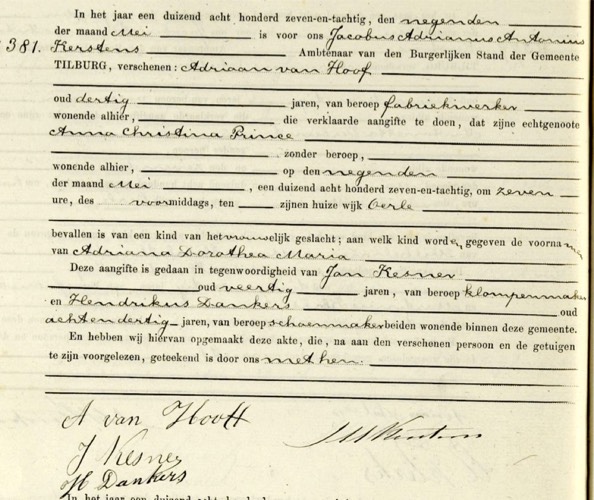 In het jaar een duizend acht honderd zeven-en-tachtig, den negenden
der maand Mei is voor ons Jacobus Adrianus Antonius
381. Kerstens Ambtenaar van den Burgerlijken Stand der Gemeente
TILBURG, verschenen: Adriaan van Hoof
oud dertig jaren, van beroep fabriekwerker
wonende alhier, die verklaarde aangifte te doen, dat zijne echtgenoote
Anna Christina Prince
zonder beroep,
wonende alhier, op den negenden
der maand Mei, een duizend acht honderd zeven-en-tachtig, om zeven
ure, des voormiddags, ten zijnen huize wijk Oerle
bevallen is van een kind van het vrouwelijk geslacht; aan welk kind worden gegeven de voornamen
van Adriana Dorothea Maria
Deze aangifte is gedaan in tegenwoordigheid van Jan Kesner
oud veertig jaren, van beroep klompenmaker
en Hendrikus Dankers oud
achtendertig jaren, van beroep schoenmaker beiden wonende binnen deze gemeente.
En hebben wij hiervan opgemaakt deze akte, die, na aan den verschenen persoon en de getuigen
te zijn voorgelezen, geteekend is door ons met hen.
A van Hooff
J Kesner
H Dankers